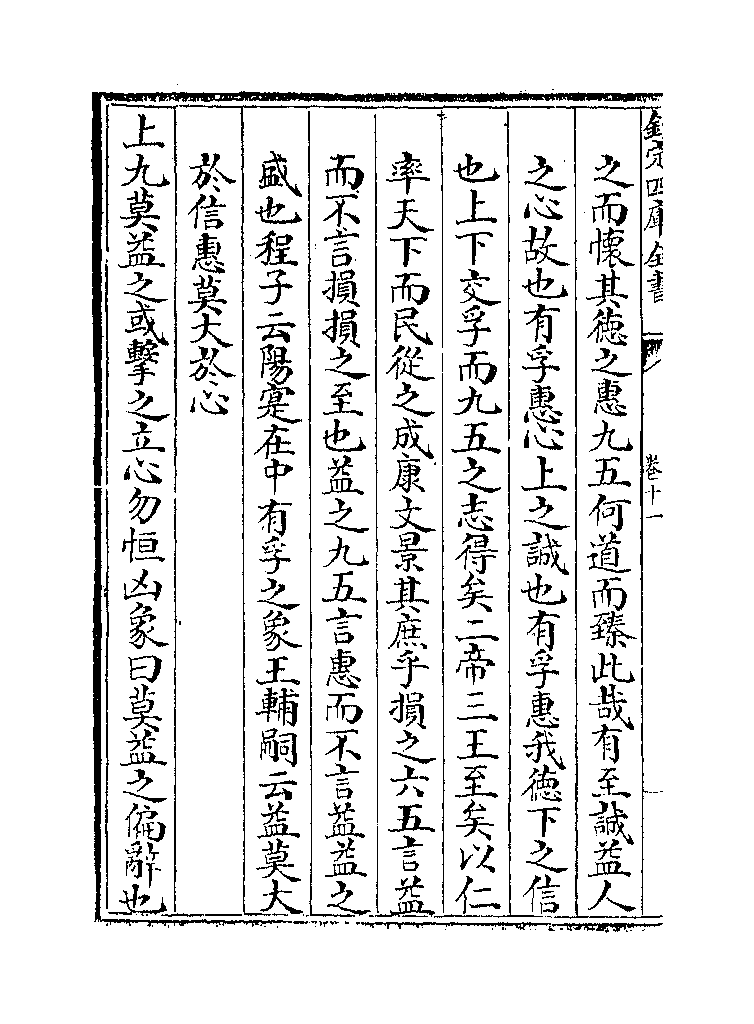 欽定四庫全書
卷十一
之而懷其徳之惠九五何道而臻此哉有至誠益人
之心故也有孚惠心上之誠也有孚惠我徳下之信
也上下交孚而九五之志得矣二帝三王至矣以仁
率天下而民從之成康文景其庶乎損之六五言益
而不言損損之至也益之九五言惠而不言益益之
盛也程子云陽寔在中有孚之象王輔嗣云益莫大
於信惠莫大於心
上九莫益之或擊之立心勿恒凶象曰莫益之偏辭也